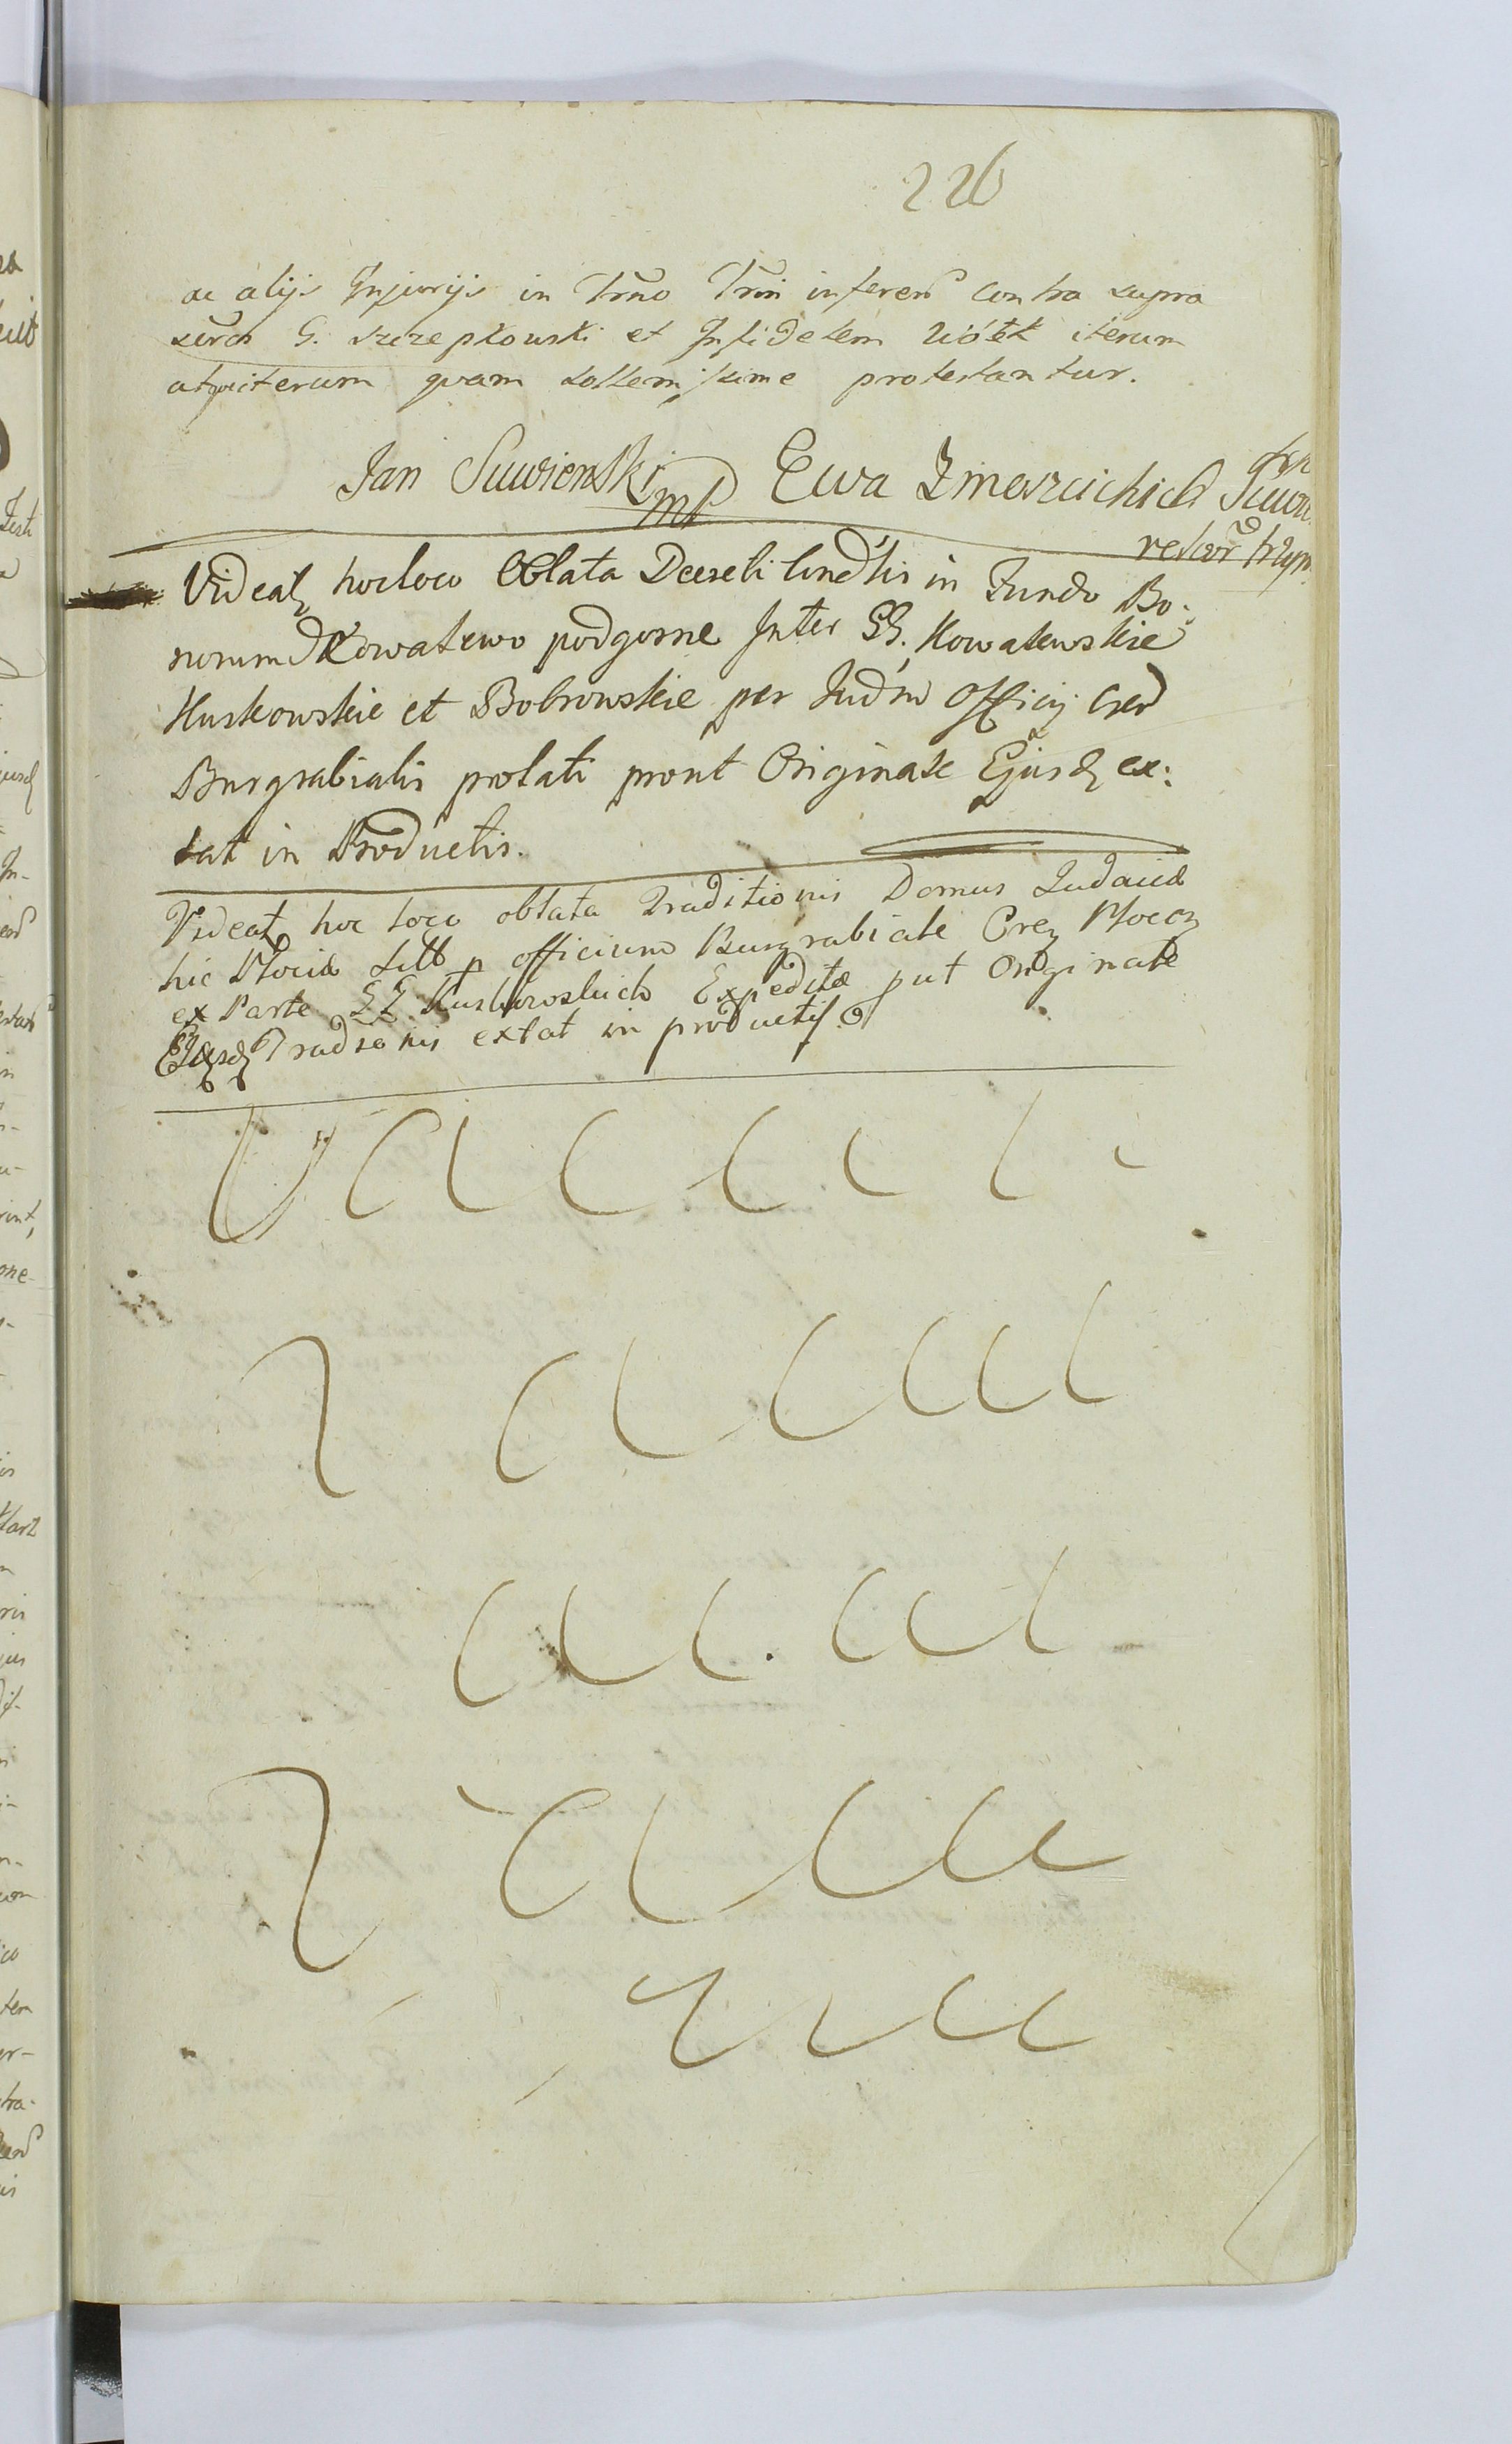 226
ac alijs Injurijs in Trno Trm inferen contra supra
scros G. Szczepkowski et Infidelem Riótk iterum
atqueiterum quam sollemissime protestantur.
Jan Suwienski mp Ewa Zmorzuchich
Videatz hocloco Oblata Decreti Condtis in Fundo Bo:
norum Kowalewo podgorne Inter GG. Kowalewskie
Kuskowskie et Bobrowskie per Judm Officij Cren
Burgrabialis prolati prout Originale Ejusdz ex:
tat in Productis.
Videatz hoc loco oblata Traditionis Domus Judaica
hic Plociæ sitæ p officium Burgrabiale Crez Plocez
ex Parte GG. Expeditæ put Originale
Ejusdz Tradtionis extat in productis